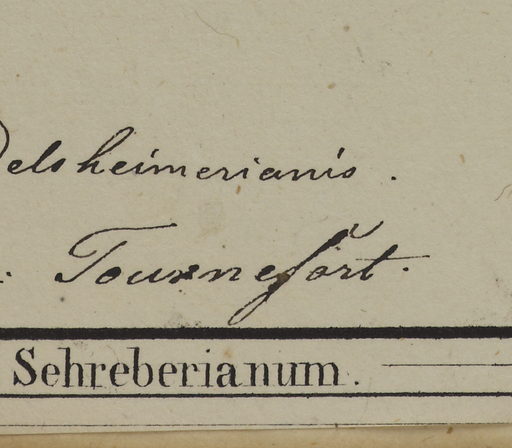 delsheimerianis.
Tournefort.
Sehreberianum.